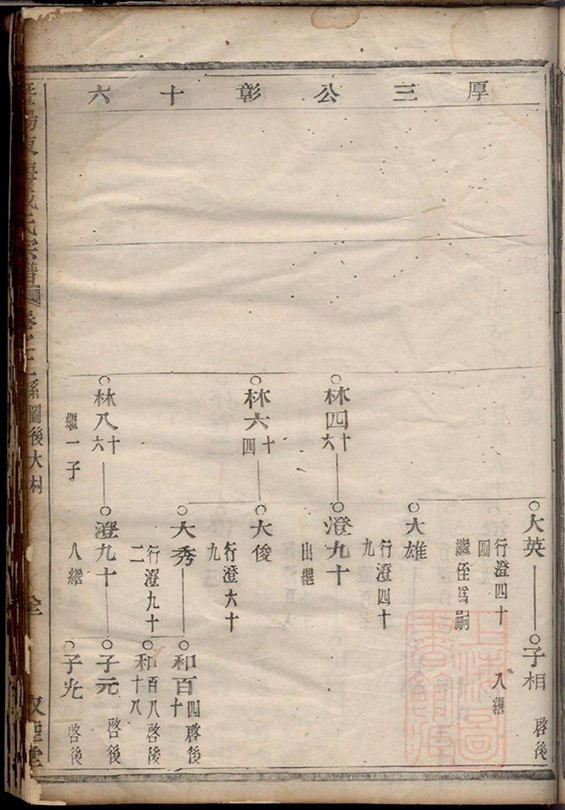 厚三公彰十六
大英
行澄四十四
繼侄爲嗣
子相
入繼
啓後
大雄
行澄四十九
林四十六
澄九十
出繼
林六十四
大俊
行澄六十九
大秀
行澄九十二
和百四十
啓後
和百八十八
啓後
林八十六
繼一子
澄九十
入繼
子元
啓後
子光
啓後
氏宗譜
系圖後大村